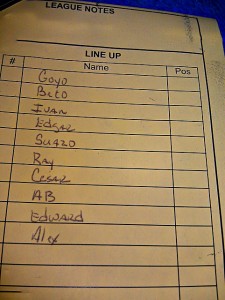 LEAGUE NOTES
LINE UP
# Name Pos
Goyo
Beto
Juan
Edgar
Suazo
Ray
Cesar
AB
Edward
Alex